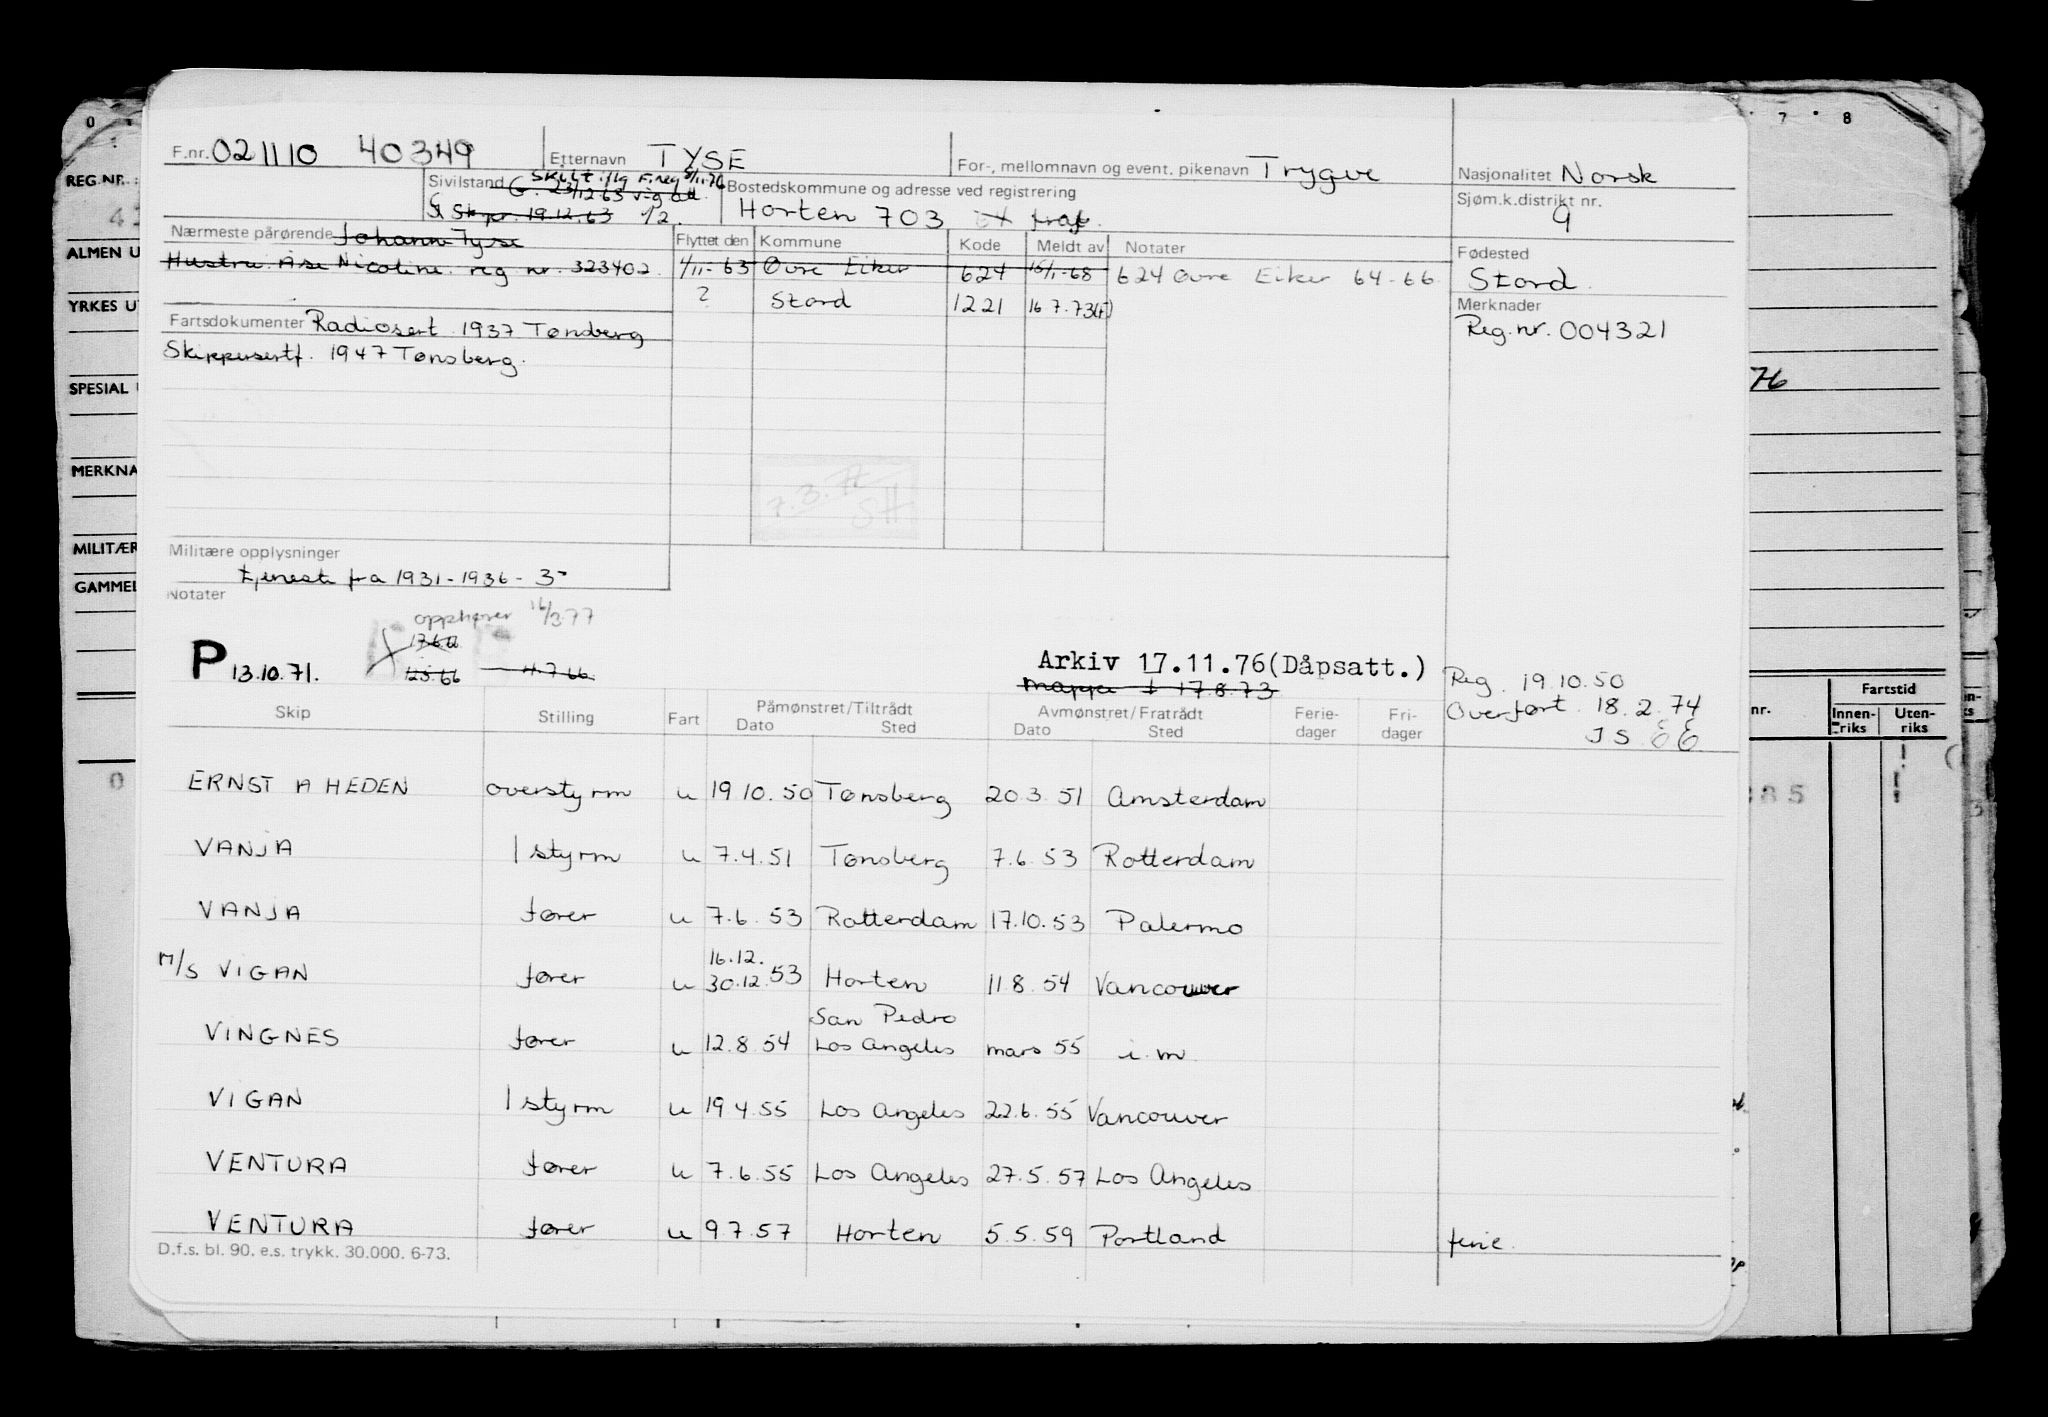 0 7 8
F.nr. 021110 40349 Etternavn TYSE For-, mellomnavn og event. pikenavn Trygve Nasjonalitet Norsk
REG.NR.
Sivilstand Skilt iflg F.reg 8/11-76
G. 23/12.63 vig att.
Skyr. 19.12.63 1/2
Bostedskommune og adresse ved registrering
Horten 703
Sjøm.k.distrikt nr.
9
Nærmeste pårørende Johann Tyse
Hustru Åse Nicoline reg nr. 323402
Flyttet den Kommune Kode Meldt av Notater
1/11-63 Øvre Eiker 624 15/1-68 624 Øvre Eiker 64-66
? Stord 1221 16 7.73(F)
Fødested
Stord
Merknader
Reg.nr. 004321
ALMEN U
YRKES U
Fartsdokumenter Radiosert 1937 Tønsberg
Skippersertf. 1947 Tønsberg.
SPESIAL
76
MERKNA
7.3.77
SH
MILITÆR
GAMMEL
Militære opplysninger
tjeneste fra 1931-1936-3-
Notater
opphører 16/3.77
P 13.10.71.
12 5 66 4.7.66
Arkiv 17.11.76(Dåpsatt.)
mappe 17.8.73
Reg. 19.10.50
Overført 18.2.74
J S
Skip Stilling Fart Påmønstret/Tiltrådt Dato Sted Avmønstret/Fratrådt Dato Sted Ferie-dager Fri-dager
nr. Fartstid Innen-riks Uten-riks
ERNST A HEDEN overstyrm u 19 10. 50 Tønsberg 20.3.51 Amsterdam
VANJA 1 styrm u 7.4.51 Tønsberg 7.6.53 Rotterdam
VANJA fører u 7.6.53 Rotterdam 17.10.53 Palermo
M/S VIGAN fører u 16.12. 30.12.53 Horten 11.8.54 Vancouver
VINGNES fører u 12.8.54 San Pedro Los Angeles mars 55 i.m
VIGAN 1 styrm u 19 4.55 Los Angeles 22.6.55 Vancouver
VENTURA fører u 7.6.55 Los Angeles 27.5.57 Los Angeles
VENTURA fører u 9.7.57 Horten 5.5.59 Portland ferie.
D.f.s. bl. 90. e.s. trykk. 30.000. 6-73.